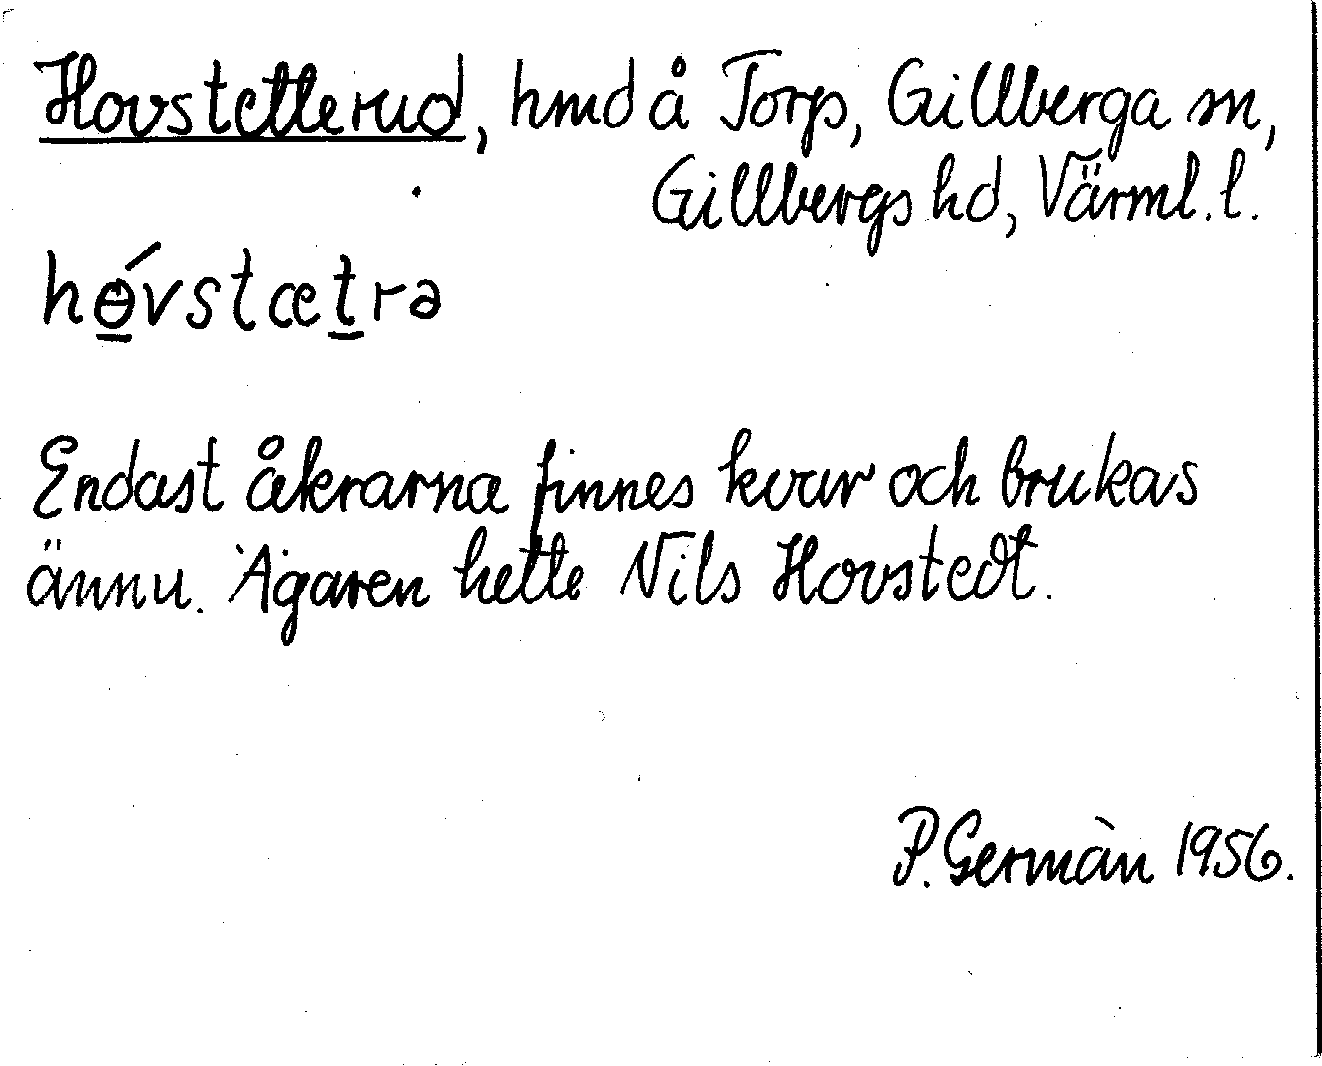 Hovstetterud, hmd å Torp, Gillberga sn,
Gillbergs hd, Värml. l.
hө́vstætrə
Endast åkrarna finnes kvar och brukas
ännu. Ägaren hette Nils Hovstedt.
P. Germàn 1956.